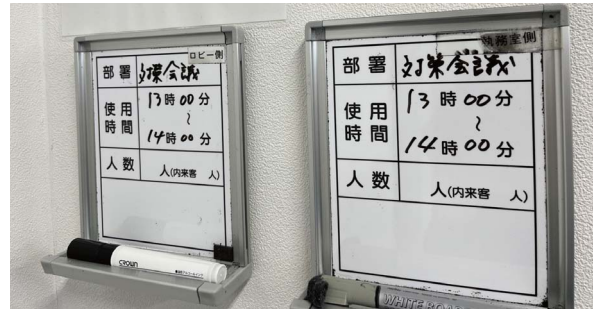 ロビー側
部署 対策会議
使用時間 13時00分
～
14時00分
人数 人(内来客 人)
CROWN
執務室側
部署 対策会議
使用時間 13時00分
～
14時00分
人数 人(内来客 人)